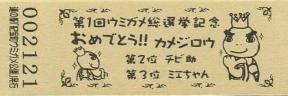 第1回ウミガメ総選挙記念
おめでとう!! カメジロウ
第2位 チビ助
第3位 ミエちゃん
002121